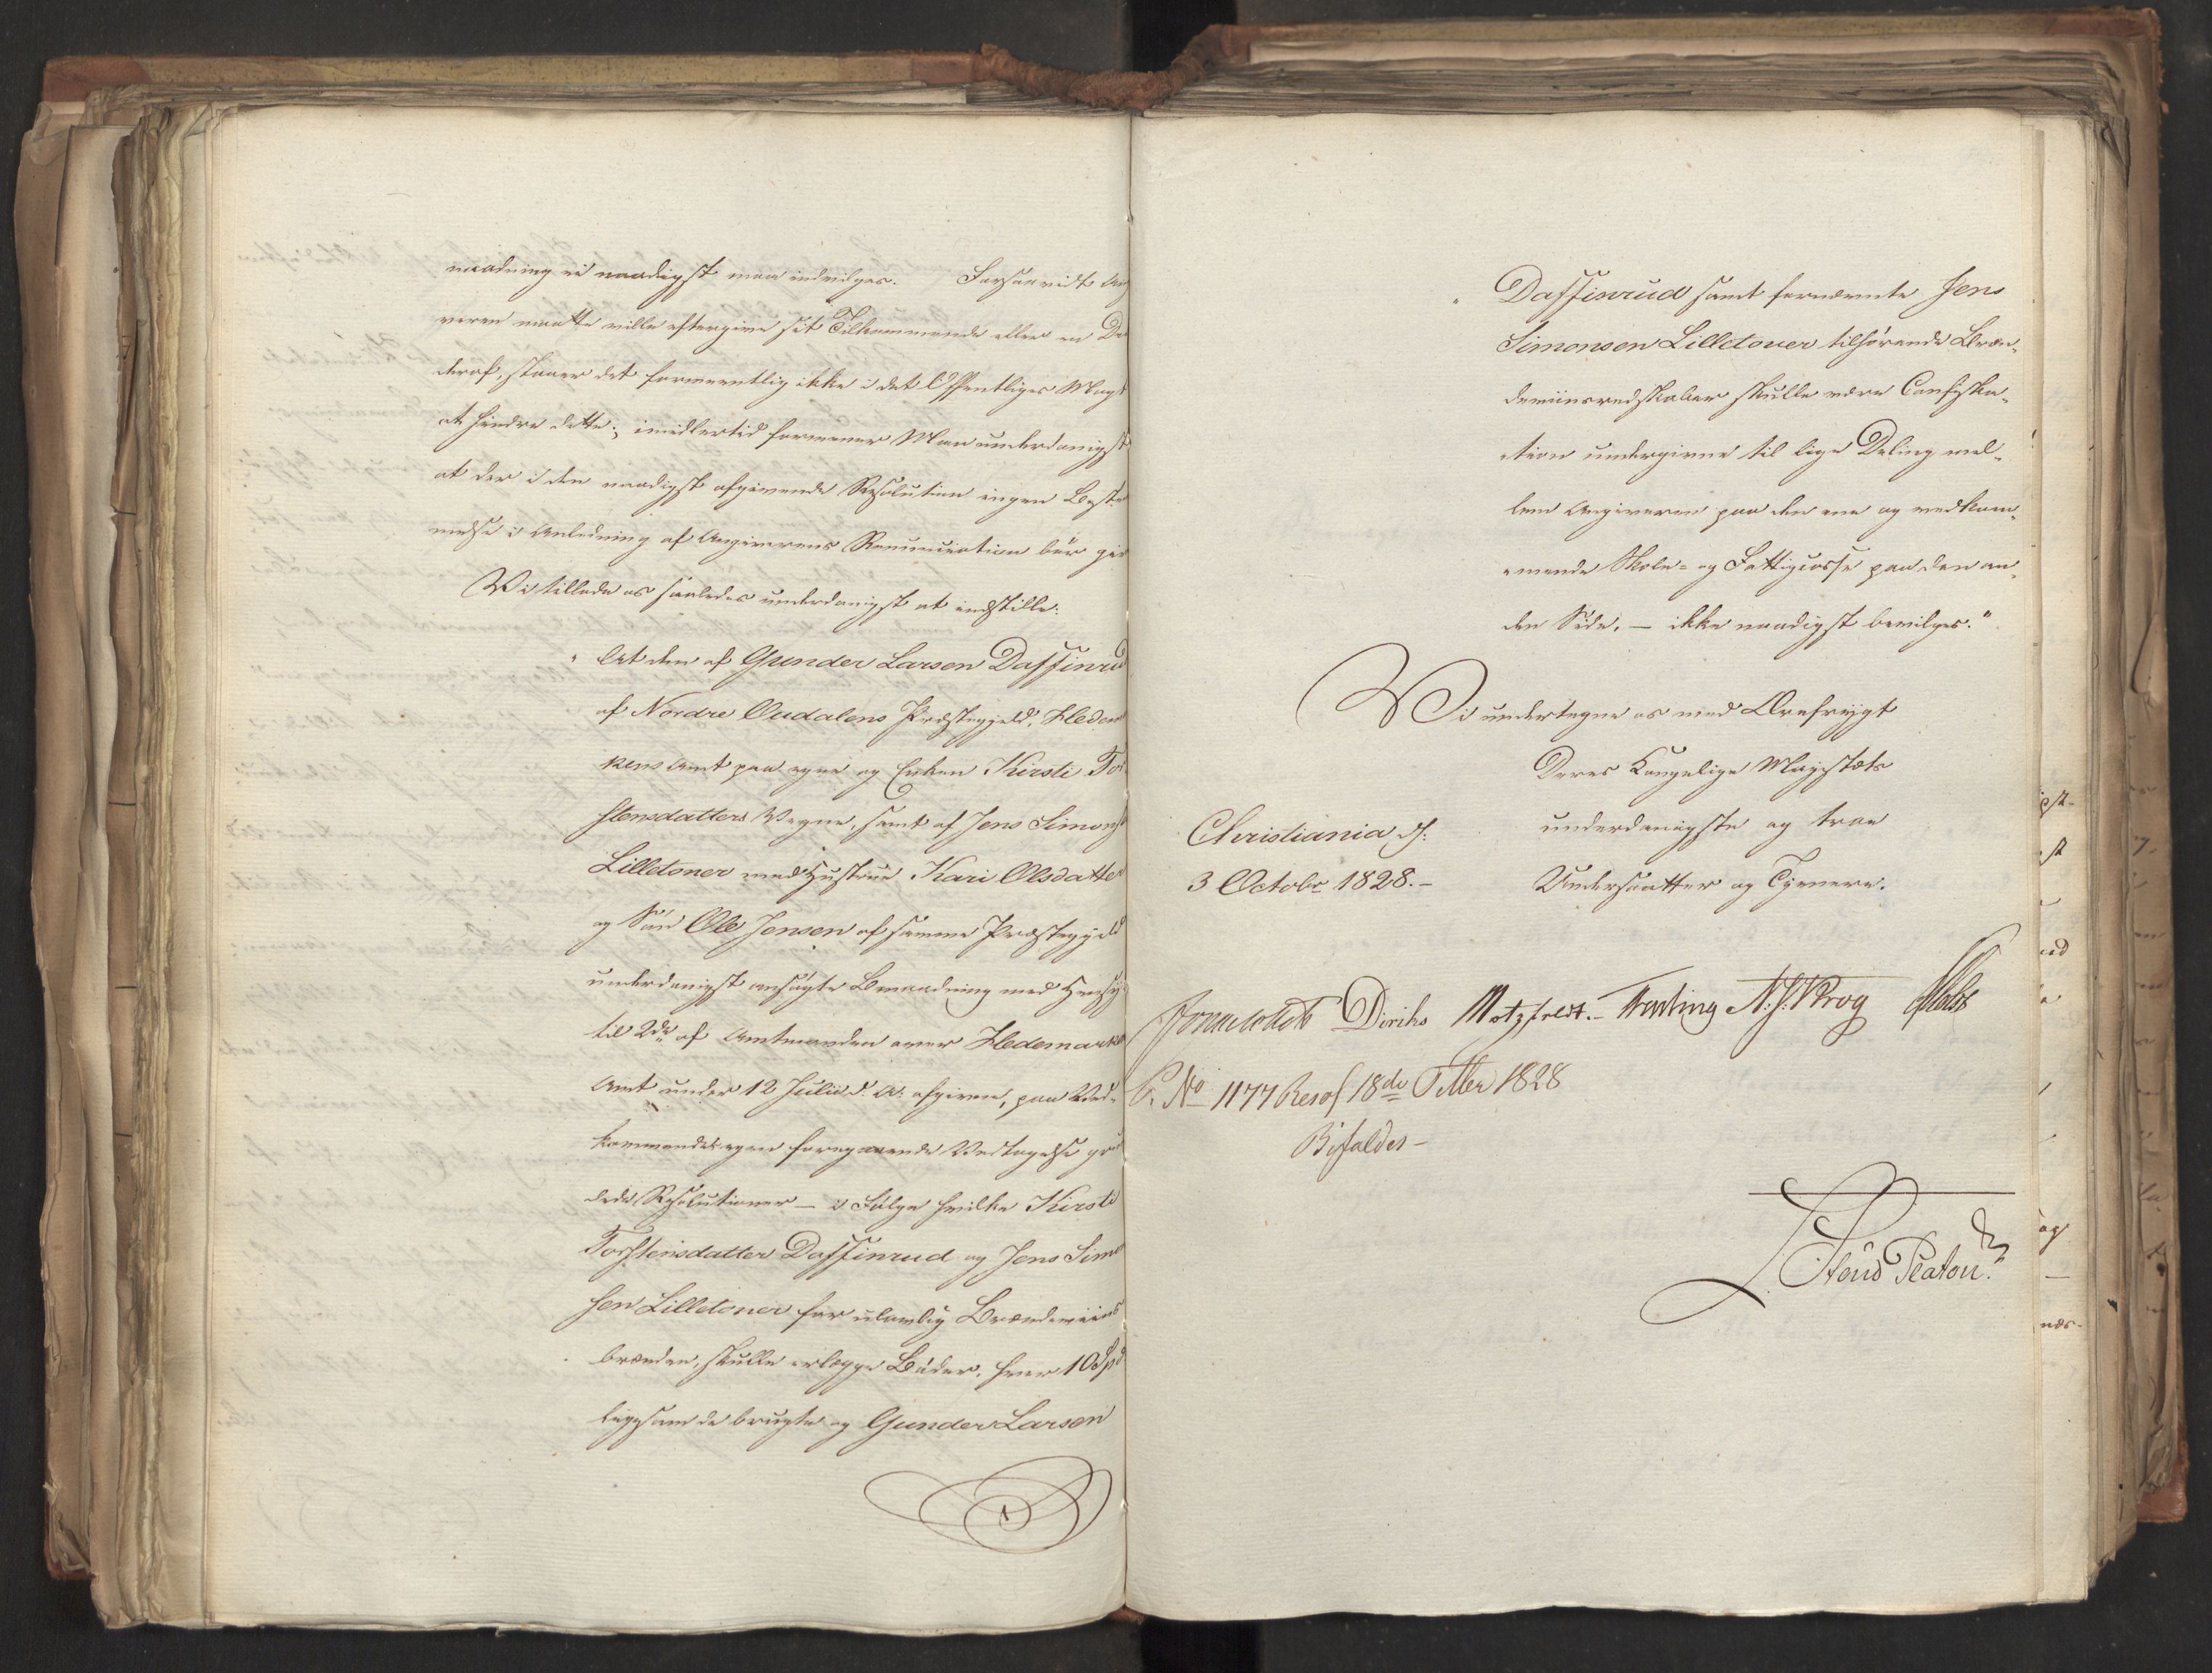 naadning ei naadigst maa indvilges. Forsaavidt An
veren maatte ville eftergive sit Tilkommende eller en De
deraf, staaer det formeentlig ikke i det Offentliges Magt
at hindre dette; imidlertid formener Man underdanigst
at der i den naadigst afgivende Resolution ingen Beste
melse i Anledning af Angiverens Renunciation bør giv
Vi tillade os saaledes underdanigst at indstille:
" At den af Gunder Larsen Dassinrud
af Nordre Oudalens Præstegjeld, Hedem
kens Amt paa egne og Enken Kirsti Tor
stensdatters Vegne, samt af Jens Simons
Lilletoner med Hustrue Kari Olsdatter
og Søn Ole Jensen af samme Præstegjeld
underdanigst ansøgte Benaadning med Hensyn
til 2de af Amtmanden over Hedemarke
Amt under 12 Julii d. A. afgivne, paa Ved-
kommendes egen foregaaende Vedtagelse gru
dede Resolutioner – i Følge hvilke Kirsti
Torstensdatter Dassinrud og Jens Simo
sen Lilletoner for ulovlig Brændeviins
brænden, skulle erlægge Bøder, hver 10 Spd
ligesom de brugte og Gunder Larsen
" Dassinrud samt fornævnte Jens
Simonsen Lilletoner tilhørende Bræn-
deviinsredskaber skulle være Confiska-
tion undergivne til lige Deling mel-
lem Angiveren paa den ene og vedkom-
mende Skole- og Fattigcasse paa den an-
den Side, – ikke naadigst bevilges."
Vi undertegne os med Ærefrygt
Deres Kongelige Majestæts
underdanigste og troe
Undersaatter og Tjenere.
Christiania d.
3 Octobr 1828.-
Diriks Motzfeldt.- Treschow N. J. Krog
P. No 1177 Resol 18de Octber 1828
Bifaldes -